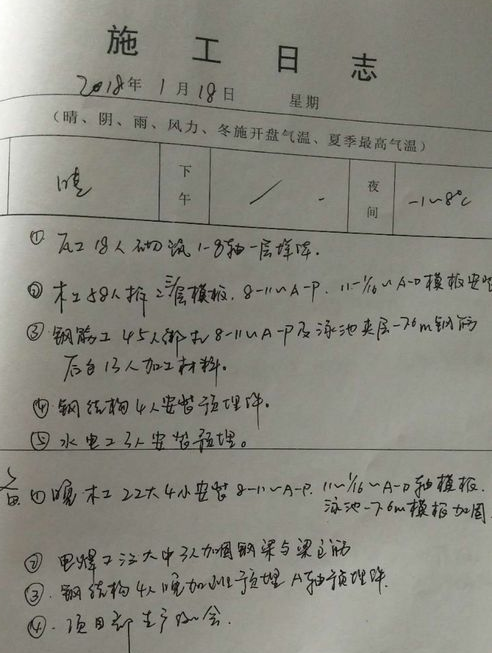 施工日志
2018年1月18日 星期
(晴、阴、雨、风力、冬施开盘气温、夏季最高气温)
晴 下午 / 夜间 -1~8℃
① 瓦工18人砌筑1-8轴一层
② 木工58人拆二层模板.8-11~A-P.11-1/16~A-D模板安
③ 钢筋工45人绑扎8-11~A-P及泳池夹层-7.6m钢筋
后台13人加工材料。
④ 钢结构4人安装预埋件。
⑤ 水电工3人安装预埋。
① 晚木工22大4小安装8-11~A-P.11~1/16~A-D轴模板.
泳池-7.6m模板加固
② 电焊工江大中3人加固钢梁与梁主筋
③. 钢结构4人晚加班预埋A轴预埋件.
④. 项目部生产会.